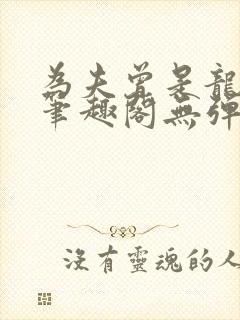 為夫曾是龍
筆趣閣無彈
沒有靈魂的人